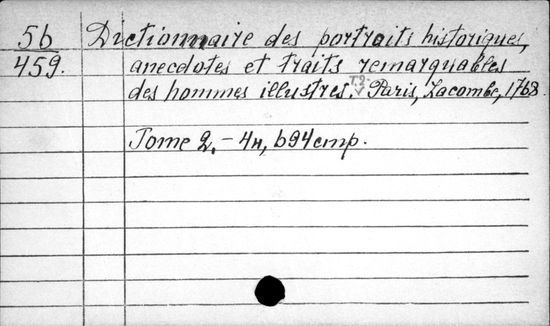 5b Dictionnaire des portraits historiques,
459. anecdotes et traits remarquables
des hommes illustres. T.2. Paris, Lacombe, 1768.
Tome 2. – 4н, 694 стр.